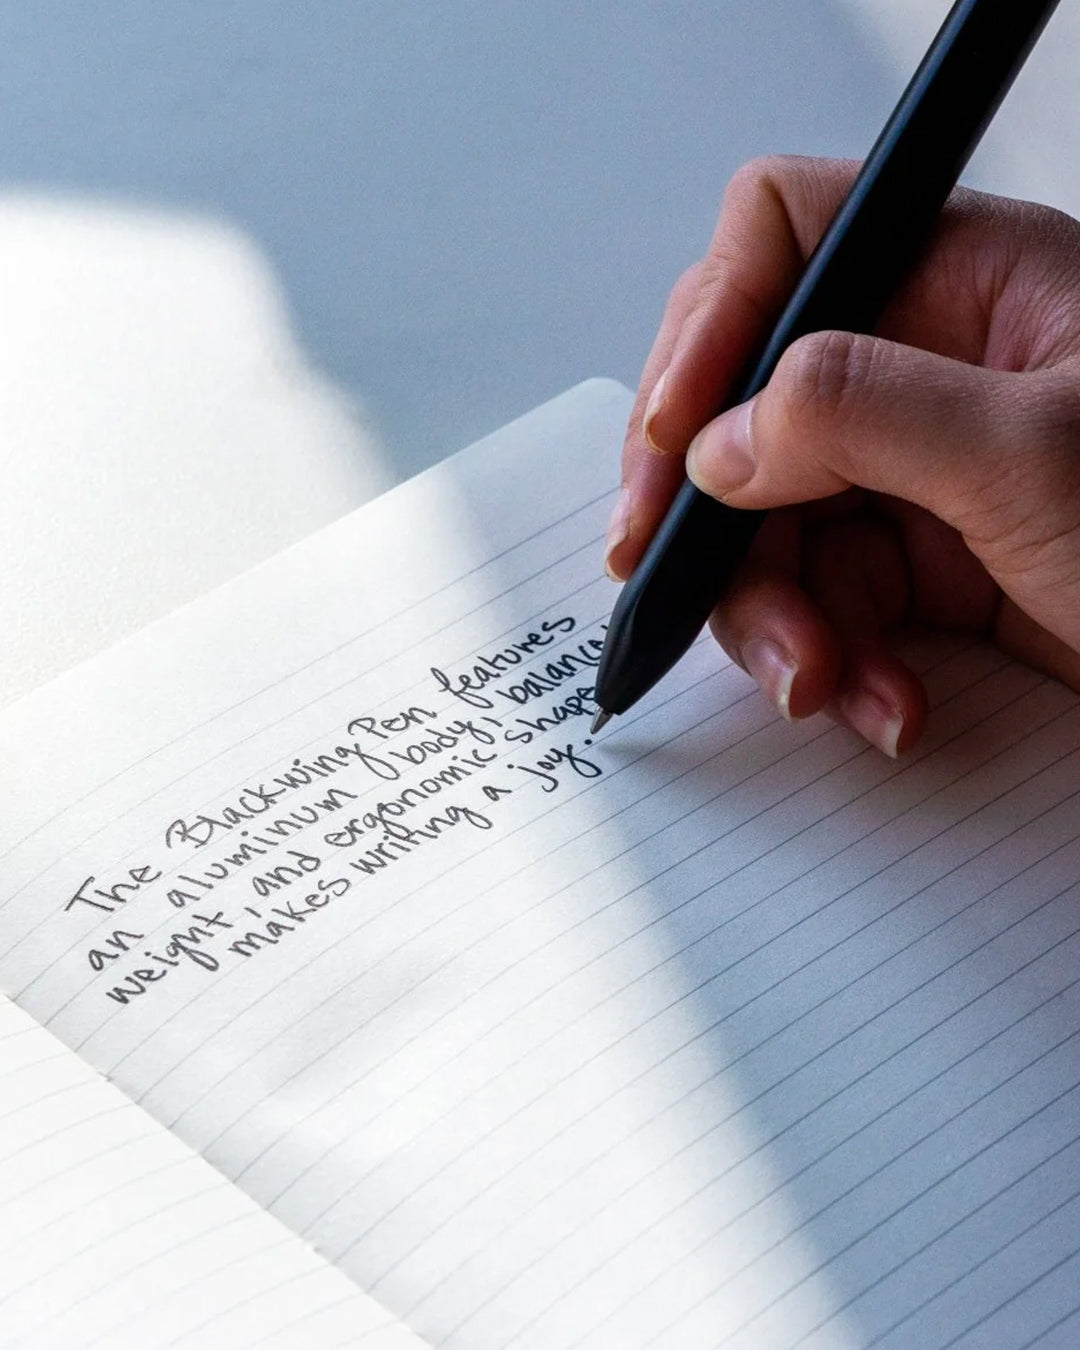 The Blackwing Pen features
an aluminum body, balance
weight, and ergonomic shape
makes writing a joy.